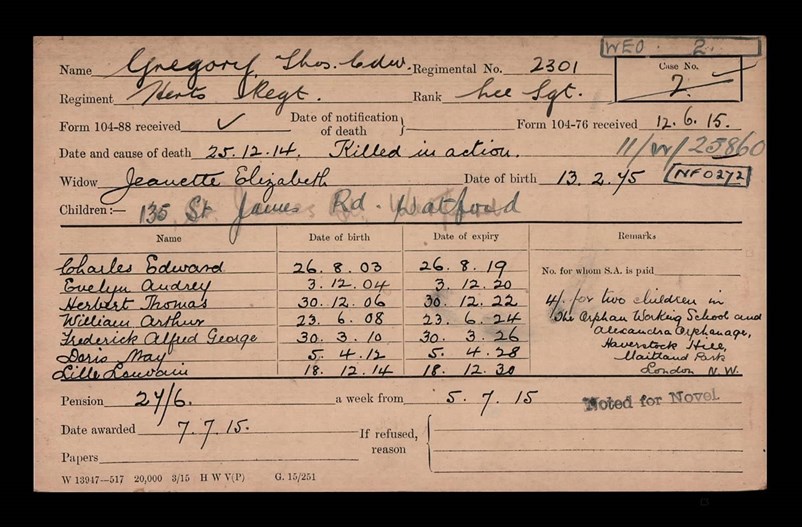 WEO 2
Name Gregory, Thos. Edw. Regimental No. 2301 Case No.
Regiment Herts Regt. Rank Lce Sgt. 7.
Form 104-88 received ✓ Date of notification of death } Form 104-76 received 12.6.15.
Date and cause of death 25.12.14. Killed in action. 11/W/25860
Widow Jeanette Elizabeth Date of birth 13.2.75 NF0272
Children:— 135 St James Rd. Watford
Name Date of birth Date of expiry Remarks
Charles Edward 26. 8. 03 26. 8. 19 No. for whom S.A. is paid
Evelyn Audrey 3. 12. 04 3. 12. 20
Herbert Thomas 30. 12. 06 30. 12. 22 4/. for two children in
William Arthur 23. 6. 08 23. 6. 24 The Orphan Working School and
Frederick Alfred George 30. 3. 10 30. 3. 26 Alexandra Orphanage,
Doris May 5. 4. 12 5. 4. 28 Haverstock Hill,
Maitland Park
Lille Louvain 18. 12. 14 18. 12. 30 London N.W.
Pension 27/6. a week from 5. 7. 15 Noted for Novel
Date awarded 7.7.15. If refused, reason
Papers
W 13947—517 20,000 3/15 H W V(P) G. 15/251